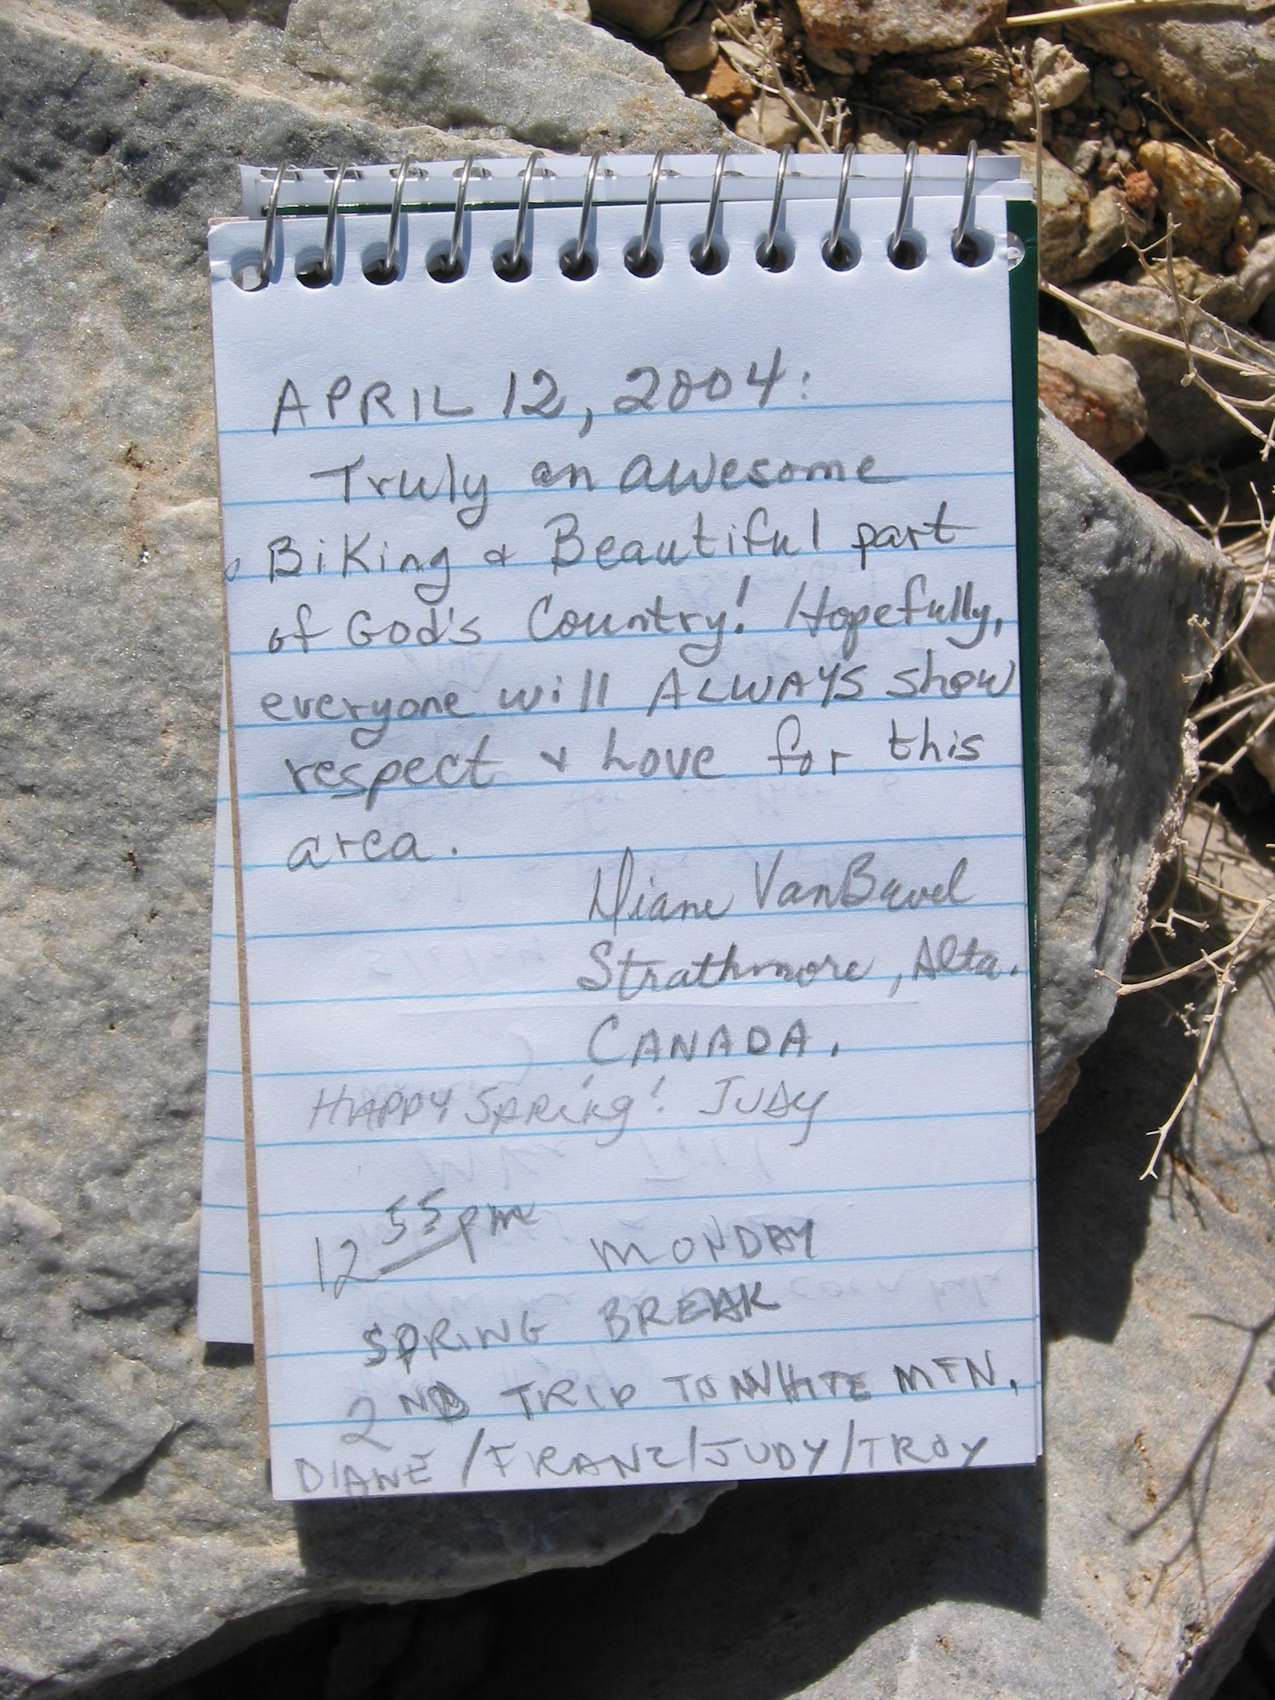 APRIL 12, 2004:
Truly an awesome
Biking & Beautiful part
of God's Country! Hopefully,
everyone will ALWAYS show
respect & Love for this
area.
Diane VanBavel
Strathmore, Alta.
CANADA.
HAPPY SPRING! JUDY
12 55 pm MONDAY
SPRING BREAK
2ND TRIP TO WHITE MTN.
DIANE / FRANZ / JUDY / TROY